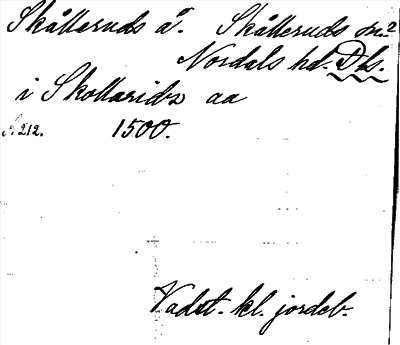 Skålleruds å. Skålleruds sn?
Nordals hd. Dls.
i Skollaridz aa
s. 212. 1500.
Vadst. kl. jordeb.